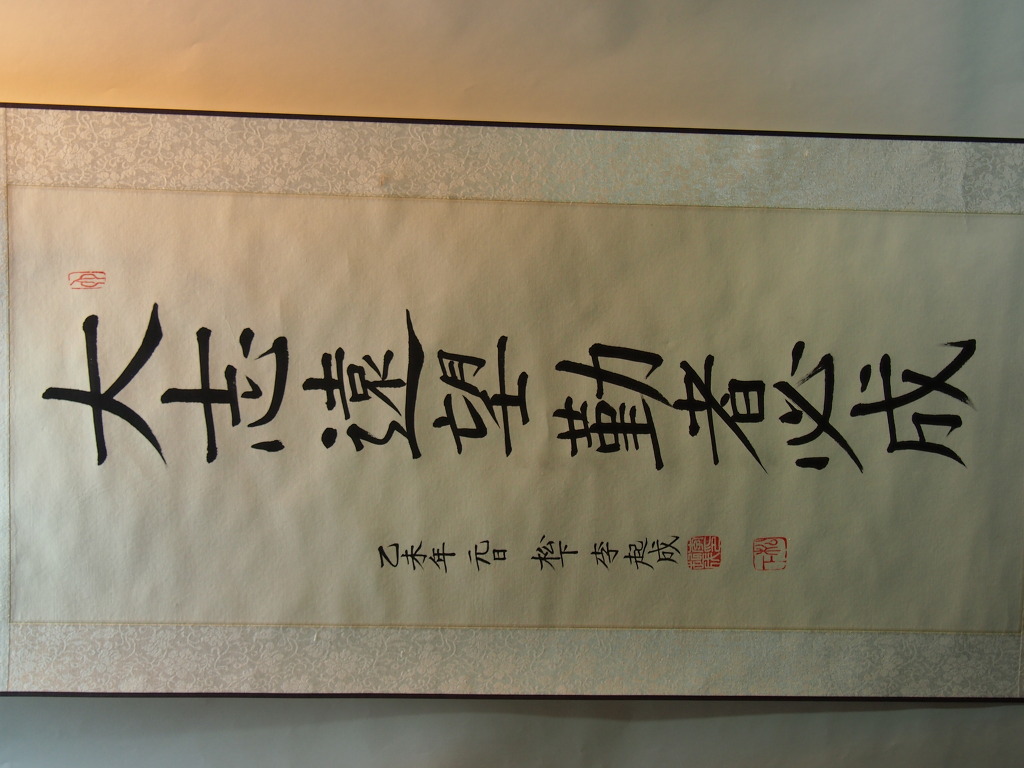 大志遠望勤者必成
乙未年 元日 松下 李起成